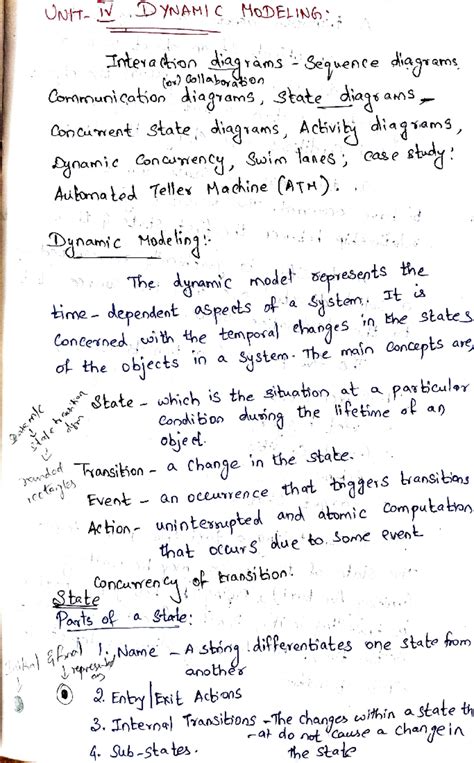 UNIT- IV DYNAMIC MODELING:
Interaction diagrams - Sequence diagrams
(or) Collaboration
Communication diagrams, State diagrams -
Concurrent State, diagrams, Activity diagrams,
Dynamic Concurrency, Swim lanes; case study:
Automated Teller Machine (ATM).
Dynamic Modeling:-
The dynamic model represents the
time - dependent aspects of a System. It is
Concerned with the temporal changes in the states
of the objects in a System. The main Concepts are,
State - which is the situation at a particular
Condition during the lifetime of an
object.
state transition
rounded
rectangles
Transition - a change in the state.
Event - an occurrence that triggers transitions
Action - uninterrupted and atomic computation
that occurs due to some event
Concurrency of transition:
State
Parts of a State:
Initial & final
represented
1. Name - A string differentiates one state from
another
2. Entry/Exit Actions
3. Internal Transitions - The changes within a state th
-at do not cause a change in
the state
4. Sub-states.